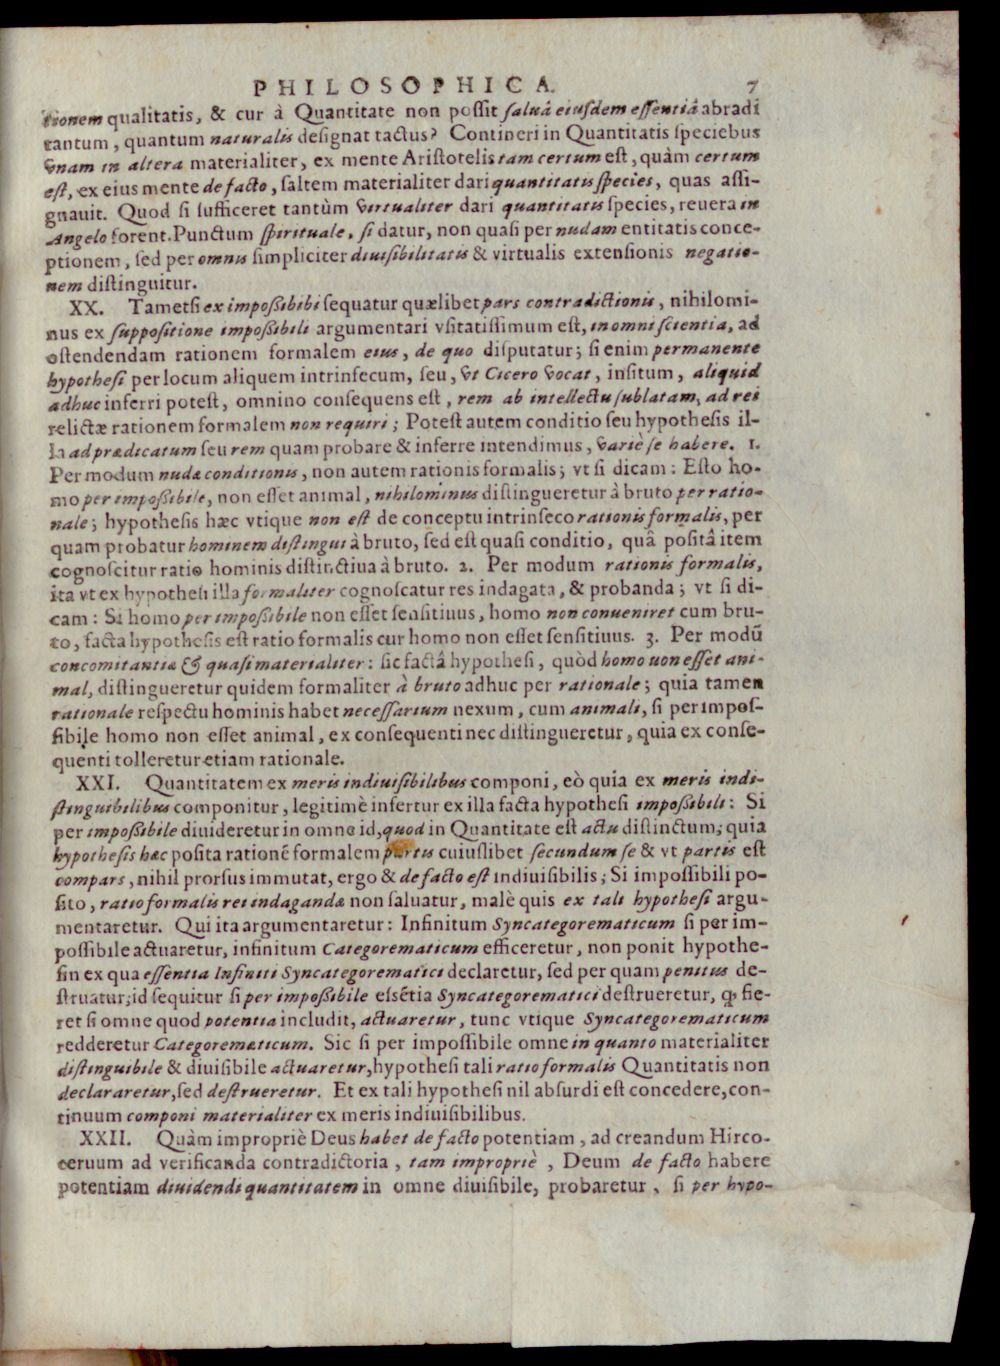 PHILOSOPHICA. 7
tionem qualitatis, & cur à Quantitate non possit saluâ eiusdem essentiâ abradi
tantum, quantum naturalis designat tactus? Contineri in Quantitatis speciebus
vnam in altera materialiter, ex mente Aristotelis tam certum est, quàm certum
est, ex eius mente de facto, saltem materialiter dari quantitatis species, quas assi-
gnauit. Quod si sufficeret tantùm virtualiter dari quantitatis species, reuera in
Angelo forent. Punctum spirituale, si datur, non quasi per nudam entitatis conce-
ptionem, sed per omnis simpliciter diuisibilitatis & virtualis extensionis negatio-
nem distinguitur.
XX. Tametsi ex impossibibi sequatur quælibet pars contradictionis, nihilomi-
nus ex suppositione impossibili argumentari vsitatissimum est, in omni scientia, ad
ostendendam rationem formalem eius, de quo disputatur; si enim permanente
hypothesi per locum aliquem intrinsecum, seu, vt Cicero vocat, insitum, aliquid
adhuc inferri potest, omnino consequens est, rem ab intellectu sublatam, ad rei
relictæ rationem formalem non requiri; Potest autem conditio seu hypothesis il-
la ad prædicatum seu rem quam probare & inferre intendimus, variè se habere. 1.
Per modum nudæ conditionis, non autem rationis formalis; vt si dicam: Esto ho-
mo per impossibile, non esset animal, nihilominus distingueretur à bruto per ratio-
nale; hypothesis hæc vtique non est de conceptu intrinseco rationis formalis, per
quam probatur hominem distingui à bruto, sed est quasi conditio, quâ positâ item
cognoscitur ratio hominis distinctiua à bruto. 2. Per modum rationis formalis,
ita vt ex hypothesi illa formaliter cognoscatur res indagata, & probanda; vt si di-
cam: Si homo per impossibile non esset sensitiuus, homo non conueniret cum bru-
to, facta hypothesis est ratio formalis cur homo non esset sensitiuus. 3. Per modū
concomitantiæ & quasi materialiter: sic factâ hypothesi, quòd homo uon esset ani-
mal, distingueretur quidem formaliter à bruto adhuc per rationale; quia tamen
rationale respectu hominis habet necessarium nexum, cum animali, si per impos-
sibile homo non esset animal, ex consequenti nec distingueretur, quia ex conse-
quenti tolleretur etiam rationale.
XXI. Quantitatem ex meris indiuisibilibus componi, eò quia ex meris indi-
stinguibilibus componitur, legitimè infertur ex illa facta hypothesi impossibili: Si
per impossibile diuideretur in omne id, quod in Quantitate est actu distinctum; quia
hypothesis hæc posita rationē formalem partis cuiuslibet secundum se & vt partis est
compars, nihil prorsus immutat, ergo & de facto est indiuisibilis; Si impossibili po-
sito, ratio formalis rei indagandæ non saluatur, malè quis ex tali hypothesi argu-
mentaretur. Qui ita argumentaretur: Infinitum Syncategorematicum si per im-
possibile actuaretur, infinitum Categorematicum efficeretur, non ponit hypothe-
sin ex qua essentia Infiniti Syncategorematici declaretur, sed per quam penitus de-
struatur; id sequitur si per impossibile essētia Syncategorematici destrueretur, ꝙ fie-
ret si omne quod potentia includit, actuaretur, tunc vtique Syncategorematicum
redderetur Categorematicum. Sic si per impossibile omne in quanto materialiter
distinguibile & diuisibile actuaretur, hypothesi tali ratio formalis Quantitatis non
declararetur, sed destrueretur. Et ex tali hypothesi nil absurdi est concedere, con-
tinuum componi materialiter ex meris indiuisibilibus.
XXII. Quàm impropriè Deus habet de facto potentiam, ad creandum Hirco-
ceruum ad verificanda contradictoria, tam impropriè, Deum de facto habere
potentiam diuidendi quantitatem in omne diuisibile, probaretur, si per hypo-